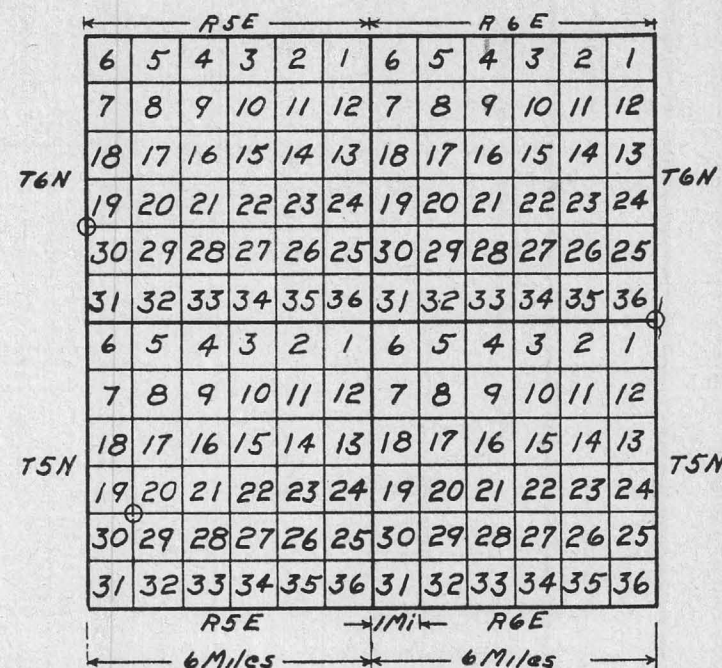 R5E R6E
6 5 4 3 2 1 6 5 4 3 2 1
7 8 9 10 11 12 7 8 9 10 11 12
18 17 16 15 14 13 18 17 16 15 14 13
T6N T6N
19 20 21 22 23 24 19 20 21 22 23 24
30 29 28 27 26 25 30 29 28 27 26 25
31 32 33 34 35 36 31 32 33 34 35 36
6 5 4 3 2 1 6 5 4 3 2 1
7 8 9 10 11 12 7 8 9 10 11 12
18 17 16 15 14 13 18 17 16 15 14 13
T5N T5N
19 20 21 22 23 24 19 20 21 22 23 24
30 29 28 27 26 25 30 29 28 27 26 25
31 32 33 34 35 36 31 32 33 34 35 36
R5E 1Mi R6E
6 Miles 6 Miles